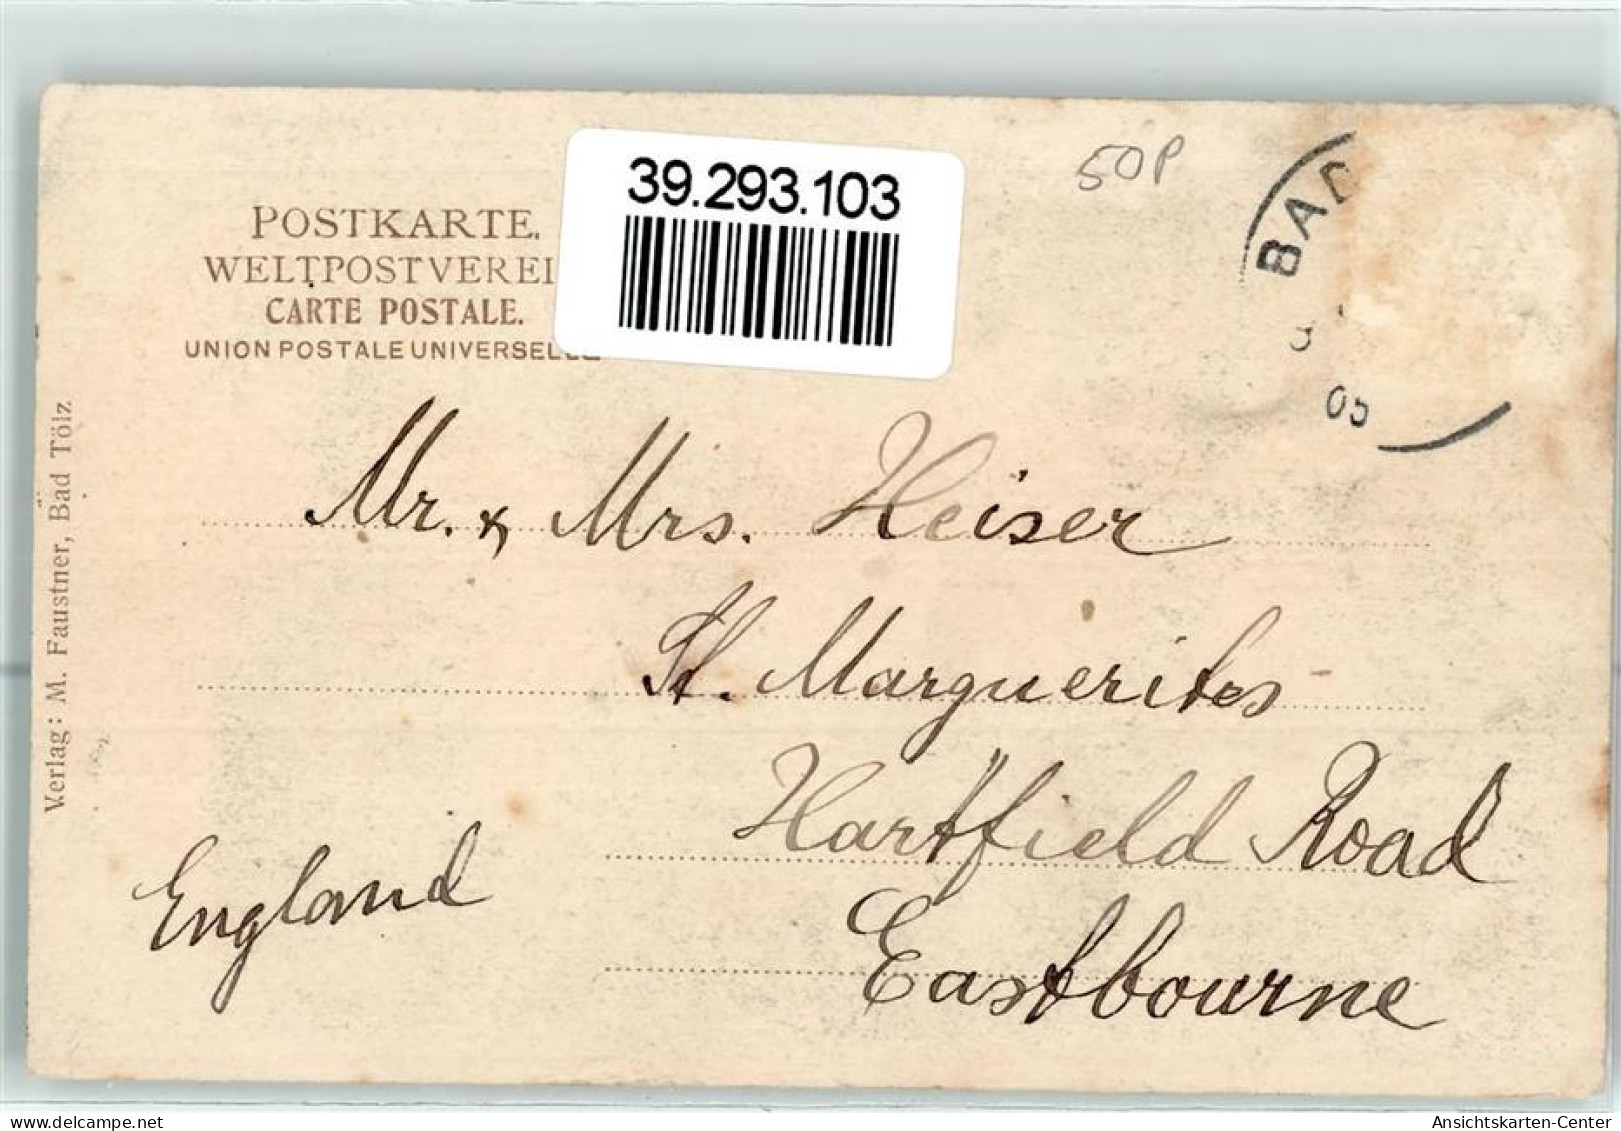 39.293.103
50P
POSTKARTE.
WELTPOSTVEREI
CARTE POSTALE.
UNION POSTALE UNIVERSELLE
BAD
05
Verlag: M. Faustner, Bad Tölz.
Mr. & Mrs. Heiser
St. Marguerites
Hartfield Road
Eastbourne
England
Ansichtskarten-Center